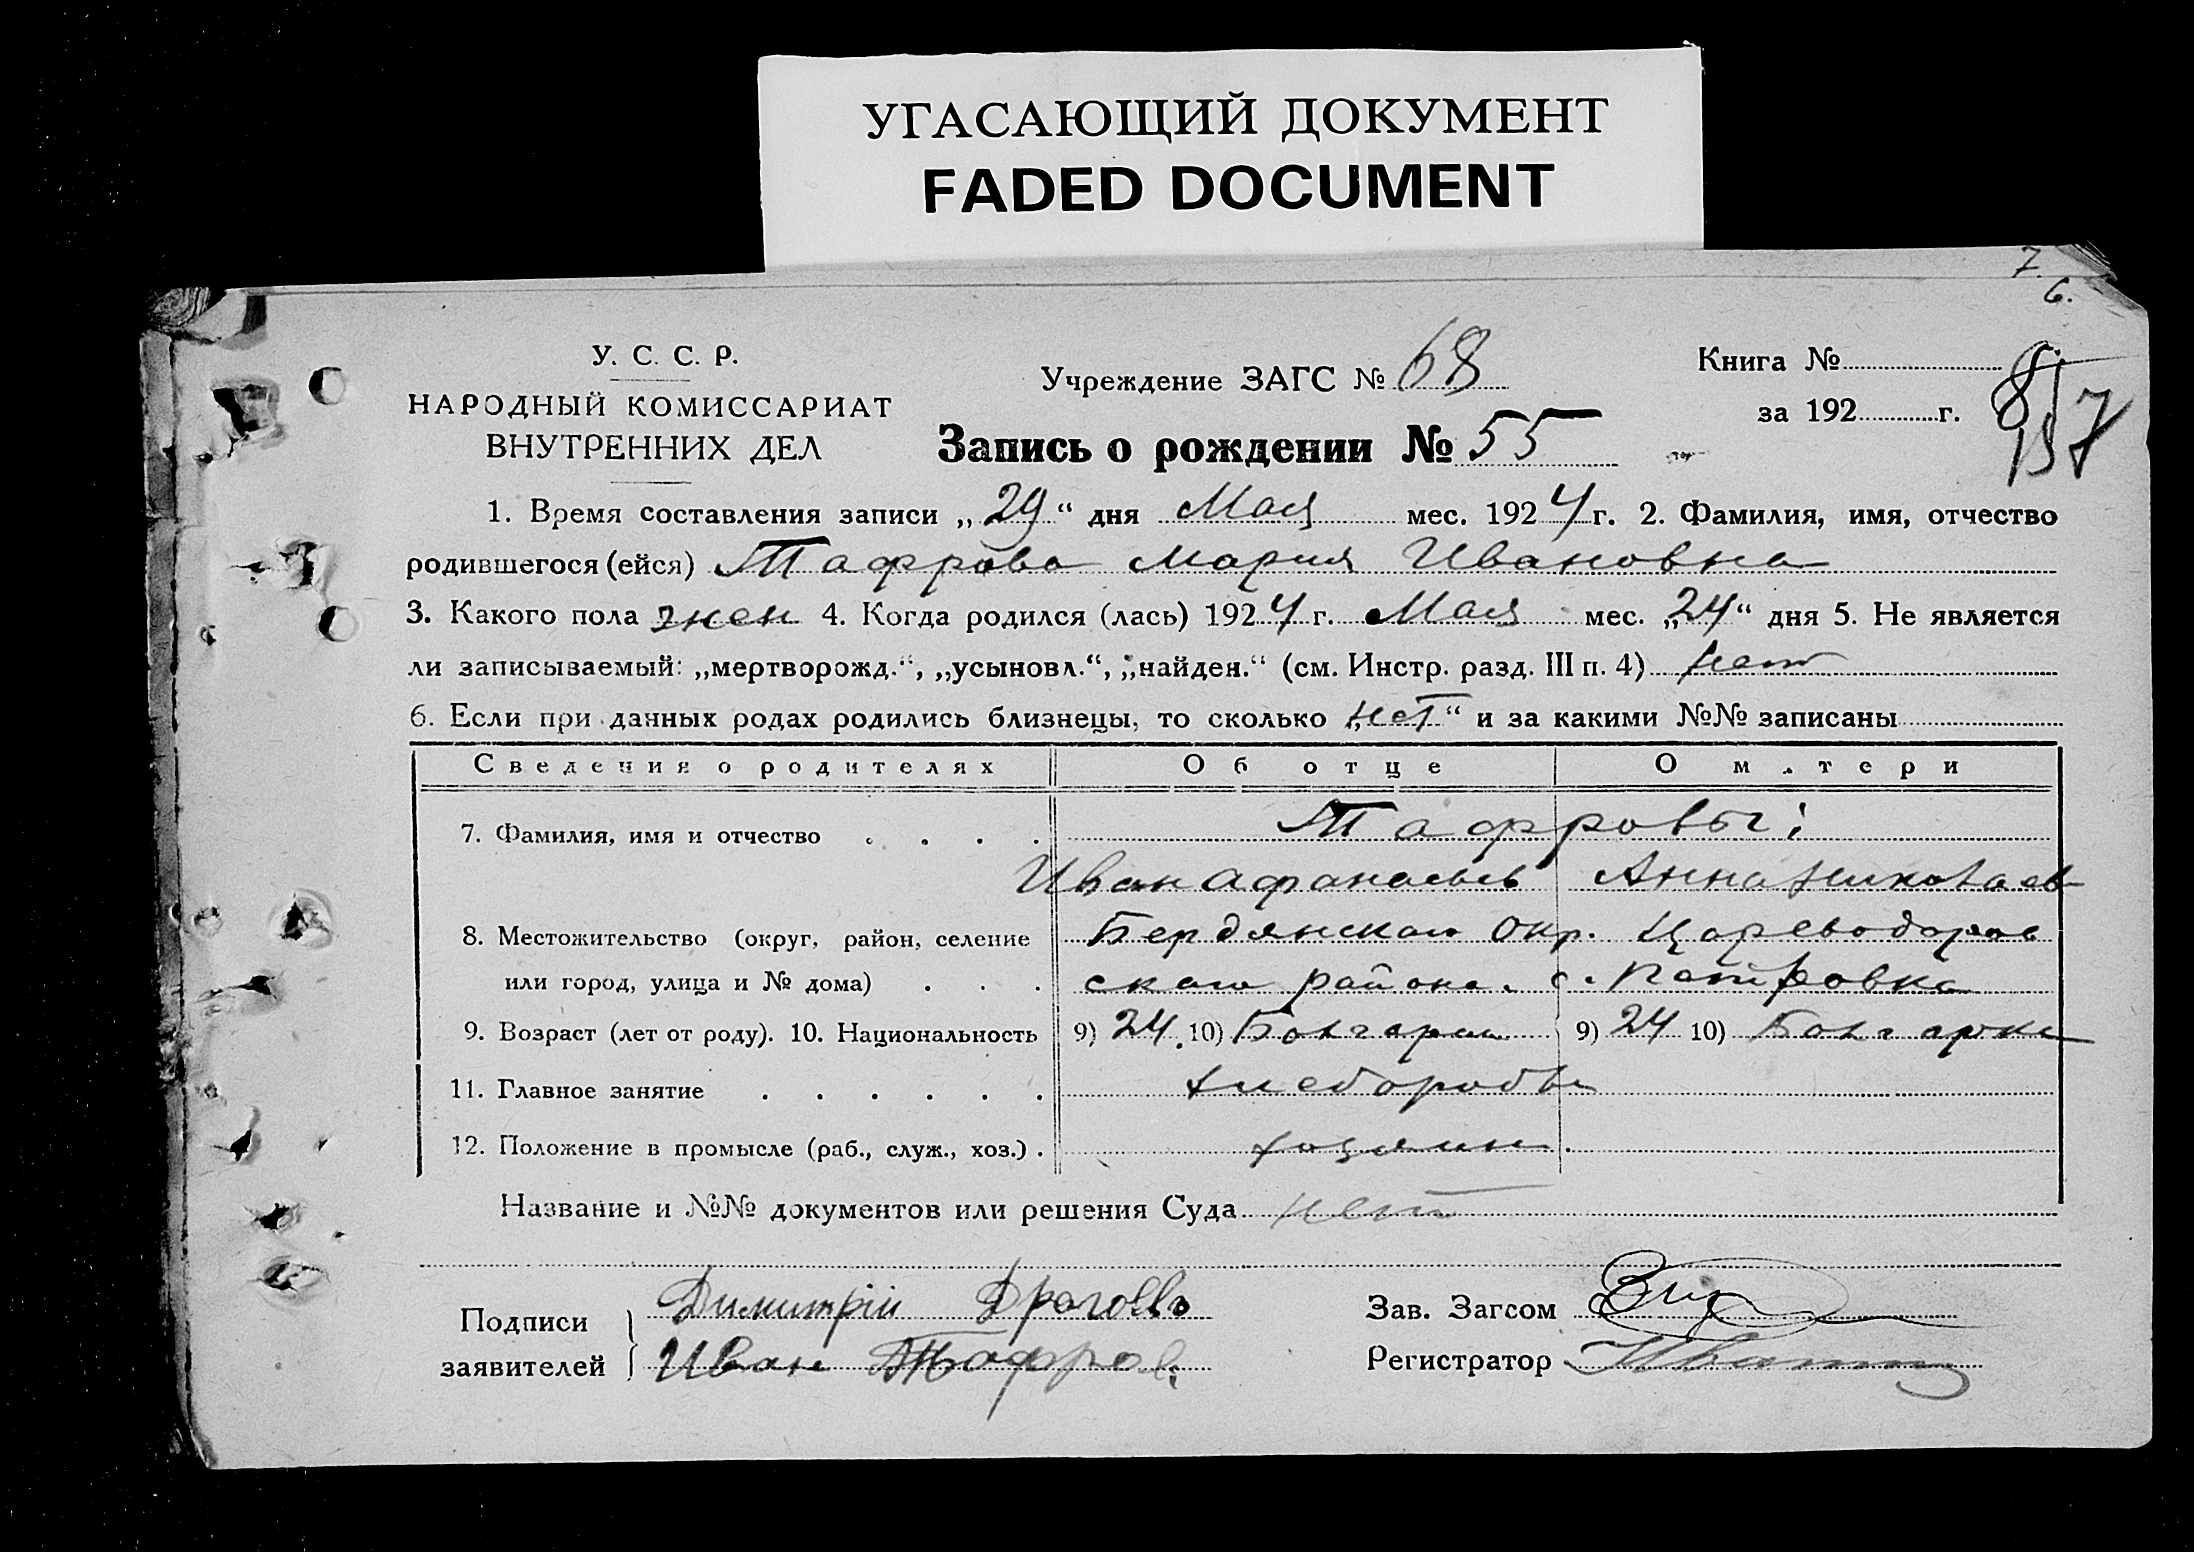 УГАСАЮЩИЙ ДОКУМЕНТ
FADED DOCUMENT
7.
6.
У. С. С. Р.
НАРОДНЫЙ КОМИССАРИАТ
ВНУТРЕННИХ ДЕЛ
Учреждение ЗАГС № 68
Книга №
за 192 г.
157
Запись о рождении № 55
1. Время составления записи „29“ дня Мая мес. 1924 г. 2. Фамилия, имя, отчество
родившегося (ейся) Тафрова Мария Ивановна
3. Какого пола жен 4. Когда родился (лась) 1924 г. Мая мес. „24“ дня 5. Не является
ли записываемый: „мертворожд.“, „усыновл.“, „найден.“ (см. Инстр. разд. III п. 4) нет
6. Если при данных родах родились близнецы, то сколько „нет“ и за какими №№ записаны
Сведения о родителях Об отце О матери
7. Фамилия, имя и отчество . . . . Тафровы:
Иван Афанасьев Анна Николаев
8. Местожительство (округ, район, селение Бердянского Окр. Цареводаров
или город, улица и № дома) . . . ского района. с. Петровка
9. Возраст (лет от роду). 10. Национальность 9) 24. 10) Болгарин 9) 24 10) Болгарка
11. Главное занятие . . . . . . хлеборобы
12. Положение в промысле (раб., служ., хоз.) . хозяин
Название и №№ документов или решения Суда нет
Подписи
заявителей
Димитрій Драгоевъ
Иван Тафров
Зав. Загсом
Регистратор